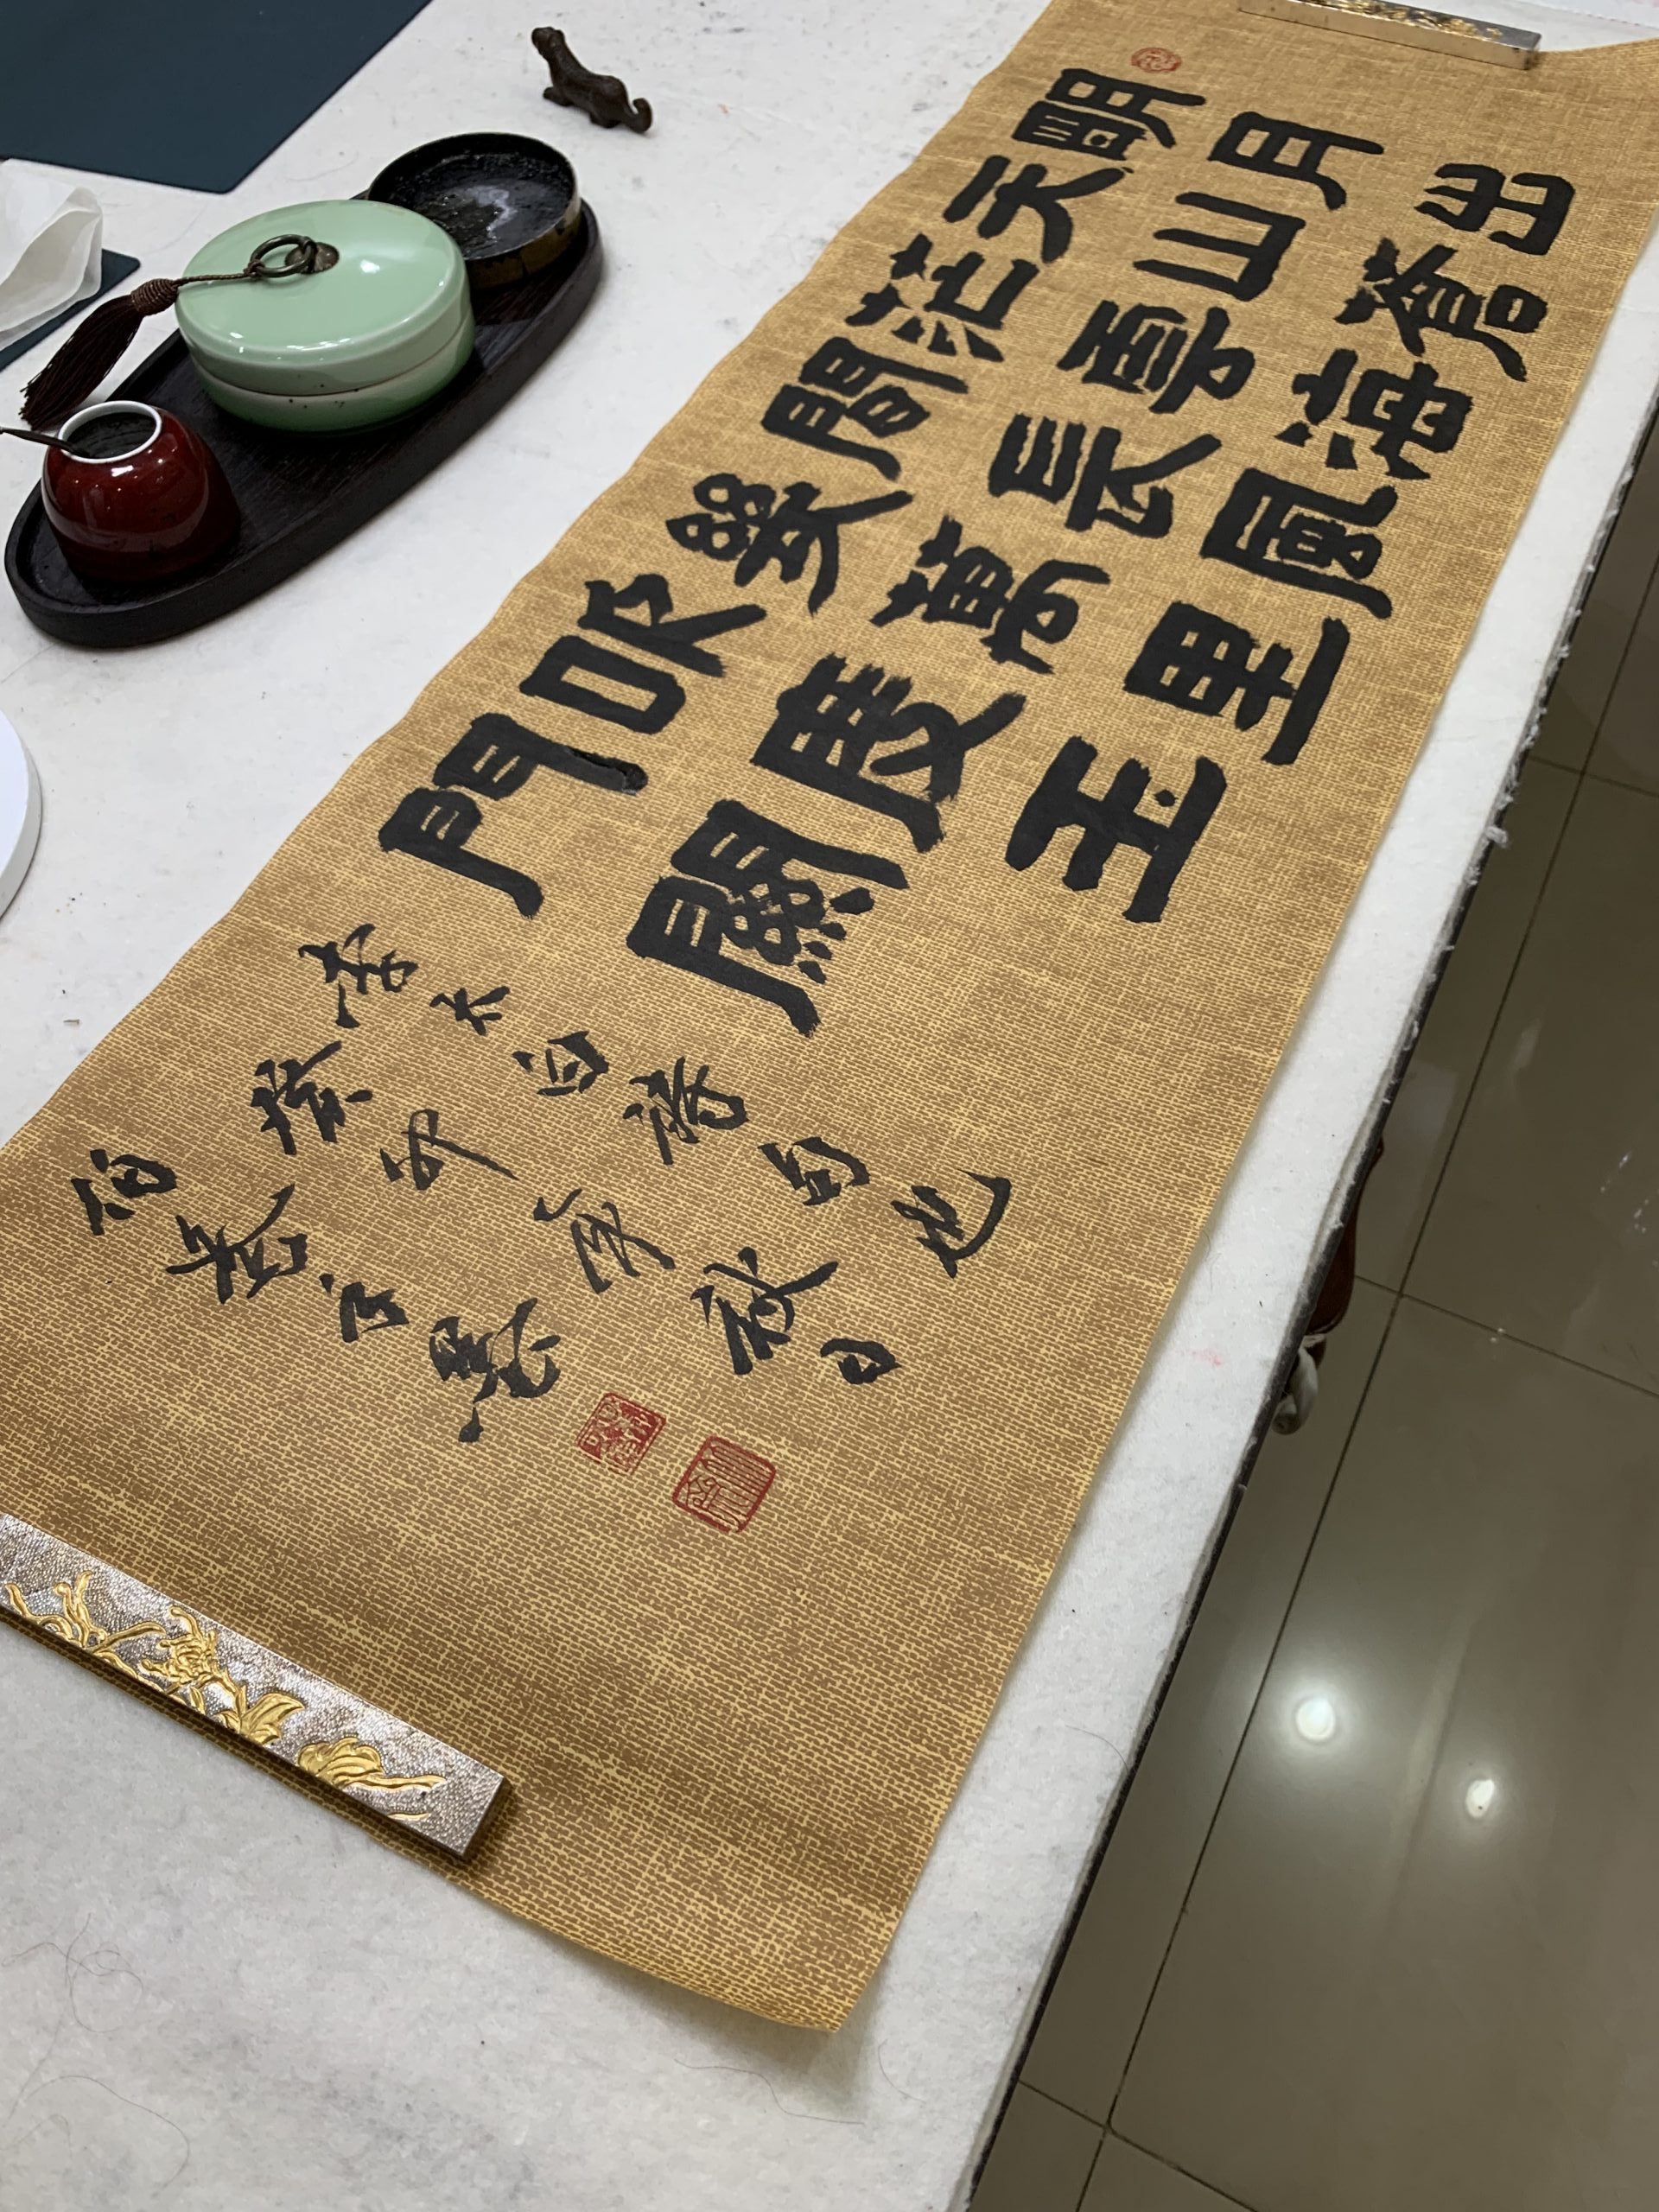 明月出
天山蒼
茫雲海
間長風
幾萬里
吹度玉
門關
李太白詩句也
癸卯年秋日